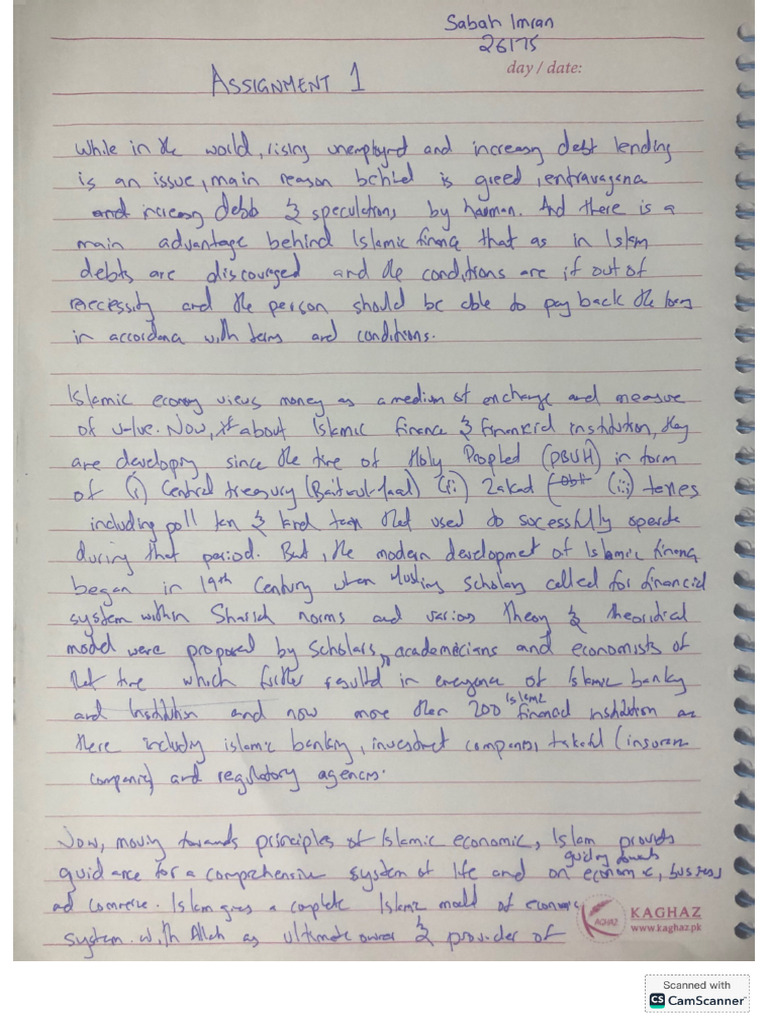 Sabah Imran
26175
day / date:
ASSIGNMENT 1
While in the world, rising unemployed and increasing debt lending
is an issue, main reason behind is greed, extravagena
and increasing debb & speculations by human. And there is a
main advantage behind Islamic finance that as in Islam
debts are discouraged and the conditions are if out of
neccessity and the person should be able to pay back the loan
in accordana with terms and conditions.
Islamic economy views money as a medium of exchange and measure
of value. Now, about Islamic finance & financial institution, they
are developing since the time of Holy Prophet (PBUH) in form
of (i) Central treasury (Baitwul-Maal) (ii) Zakat (iii) taxes
including poll tax & land tax that used to sucessfully operate
during that period. But, the modern development of Islamic finance
began in 19th Century when Muslim scholars called for financial
system within Shariah norms and various theory & theoretical
model were proposed by scholars, academecians and economists of
that time which further resulted in emergence of Islamic banking
and Institution and now more than 200 Islamic financial institution are
there including islamic banking, investment companies, takaful (insurance
companies) and regulatory agencies.
Now, moving towards principles of Islamic economic, Islam provides
guidance for a comprehensive system of life and guiding towards on economic, business
and commerce. Islam gives a complete Islamic model of economic
system. with Allah as ultimate owner & provider of
KAGHAZ
KAGHAZ
www.kaghaz.pk
Scanned with
CS CamScanner